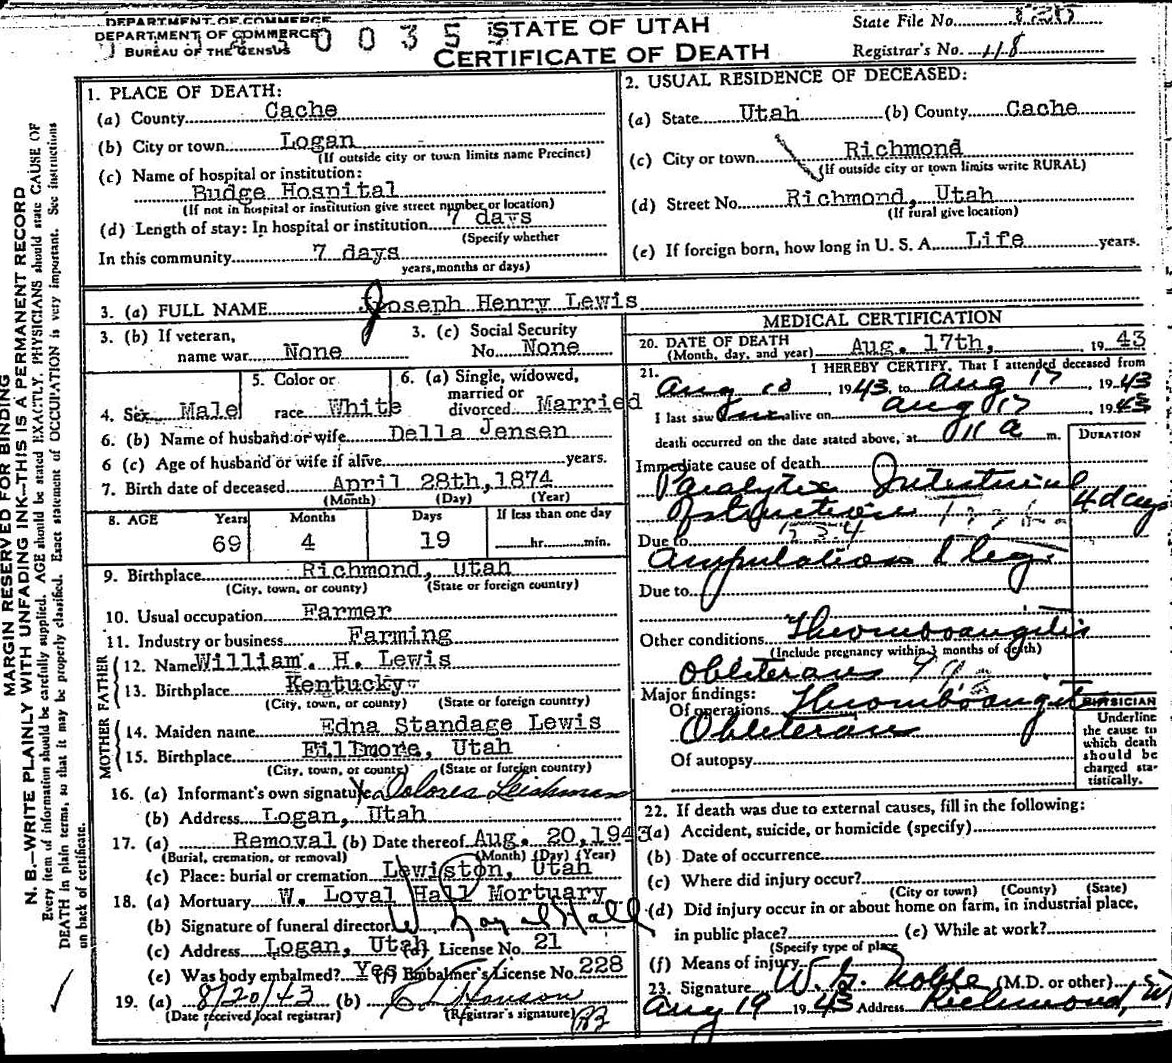 DEPARTMENT OF COMMERCE
DEPARTMENT OF COMMERCE
BUREAU OF THE CENSUS
0 0 3 5 5
STATE OF UTAH
CERTIFICATE OF DEATH
State File No.
Registrar's No. 118
MARGIN RESERVED FOR BINDING
N. B.—WRITE PLAINLY WITH UNFADING INK—THIS IS A PERMANENT RECORD
Every item of information should be carefully supplied. AGE should be stated EXACTLY. PHYSICIANS should state CAUSE OF
DEATH in plain terms, so that it may be properly classified. Exact statement of OCCUPATION is very important. See instructions
on back of certificate.
1. PLACE OF DEATH:
(a) County Cache
(b) City or town Logan
(If outside city or town limits name Precinct)
(c) Name of hospital or institution:
Budge Hospital
(If not in hospital or institution give street number or location)
(d) Length of stay: In hospital or institution 7 days
(Specify whether
In this community 7 days
years, months or days)
2. USUAL RESIDENCE OF DECEASED:
(a) State Utah (b) County Cache
(c) City or town Richmond
(If outside city or town limits write RURAL)
(d) Street No. Richmond, Utah
(If rural give location)
(e) If foreign born, how long in U. S. A. Life years.
3. (a) FULL NAME Joseph Henry Lewis
3. (b) If veteran,
name war None
3. (c) Social Security
No. None
4. Sex Male
5. Color or
race White
6. (a) Single, widowed,
married or
divorced Married
6. (b) Name of husband or wife Della Jensen
6 (c) Age of husband or wife if alive years.
7. Birth date of deceased April 28th, 1874
(Month) (Day) (Year)
8. AGE Years Months Days If less than one day
69 4 19 hr. min.
9. Birthplace Richmond, Utah
(City, town, or county) (State or foreign country)
10. Usual occupation Farmer
11. Industry or business Farming
FATHER
12. Name William. H. Lewis
13. Birthplace Kentucky
(City, town, or county) (State or foreign country)
MOTHER
14. Maiden name Edna Standage Lewis
15. Birthplace Fillmore, Utah
(City, town, or county) (State or foreign country)
16. (a) Informant's own signature Dolores Leishman
(b) Address Logan, Utah
17. (a) Removal (b) Date thereof Aug. 20, 1943
(Burial, cremation, or removal) (Month) (Day) (Year)
(c) Place: burial or cremation Lewiston, Utah
18. (a) Mortuary W. Loyal Hall Mortuary
(b) Signature of funeral director W Loyal Hall
(c) Address Logan, Utah (d) License No. 21
(e) Was body embalmed? Yes (f) Embalmer's License No. 228
19. (a) 8/20/43 (b)
(Date received local registrar) (Registrar's signature)
MEDICAL CERTIFICATION
20. DATE OF DEATH
(Month, day, and year) Aug. 17th, 1943
21. I HEREBY CERTIFY, That I attended deceased from
Aug 10 1943 to Aug 17, 1943
I last saw him alive on Aug 17 1943
death occurred on the date stated above, at 11 a m.
DURATION
Immediate cause of death
Paralytic Intestinal
Obstruction 4 days
Due to
Amputation L leg
Due to
Other conditions Thromboangitis
(Include pregnancy within 3 months of death)
Obliterans
Major findings:
Of operations Thromboangitis
Obliterans
Of autopsy
PHYSICIAN
Underline
the cause to
which death
should be
charged sta-
tistically.
22. If death was due to external causes, fill in the following:
(a) Accident, suicide, or homicide (specify)
(b) Date of occurrence
(c) Where did injury occur?
(City or town) (County) (State)
(d) Did injury occur in or about home on farm, in industrial place,
in public place? (e) While at work?
(Specify type of place
(f) Means of injury
23. Signature (M.D. or other)
Aug 19 1943 Address Richmond, U